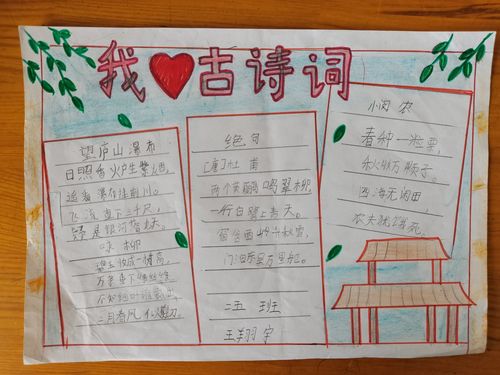 我❤古诗词
望庐山瀑布
日照香炉生紫烟,
遥看瀑布挂前川。
飞流直下三千尺,
疑是银河落九天。
咏柳
碧玉妆成一树高,
万条垂下绿丝绦
不知细叶谁裁出
二月春风似剪刀
绝句
[唐]杜甫
两个黄鹂鸣翠柳,
一行白鹭上青天。
窗含西岭千秋雪,
门泊东吴万里船。
二五班
王翔宇
悯农
春种一粒粟,
秋收万颗子。
四海无闲田,
农夫犹饿死。